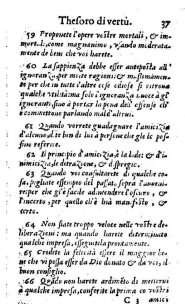 Thesoro di vertù. 37
59 Proponete l'opere vostre mortali, & im-
mortali, come magnanimo, usando moderata-
mente de beni che voi harete.
60 La sappienza debbe esser anteposta all'
ignoranza, per molte ragioni: & massimamen-
te per che in tutte l'altre cose chiose si ritrova
qualche utilità, ma solo l'ignoranza nuoce a gl'
ignoranti, fino a portar la pena dell' offense che
commettono parlando malad'altrui.
61 Quando vorrete guadagnare l'amicitia
d'alcuno, dite ben di lui a persone che gle le pos-
sino referire.
62 Il principio d'amicitia è la lode: & d'ini-
micitia, le detrattione, & dispregi.
63 Quando voi consultarete di qualche co-
sa, pigliate essempio del passato, sopra l'avveni-
re, per che gl'è facile ad intendere l'oscuro, &
l'incerto, per quello ch'è hià manifesto, &
certo.
64 Non siate troppo veloce nelle vostre de-
liberationi: ma quando harete determinato
qualche impresa, esseguitela prontamente.
65 Credete la felicità essere il maggior be-
ne che vi possa esser da Dio donato & da voi, il
buon consiglio.
66 Quando non harete ardimento di mettervi
a qualche impresa, conferite la prima co vostri
G 3 amici